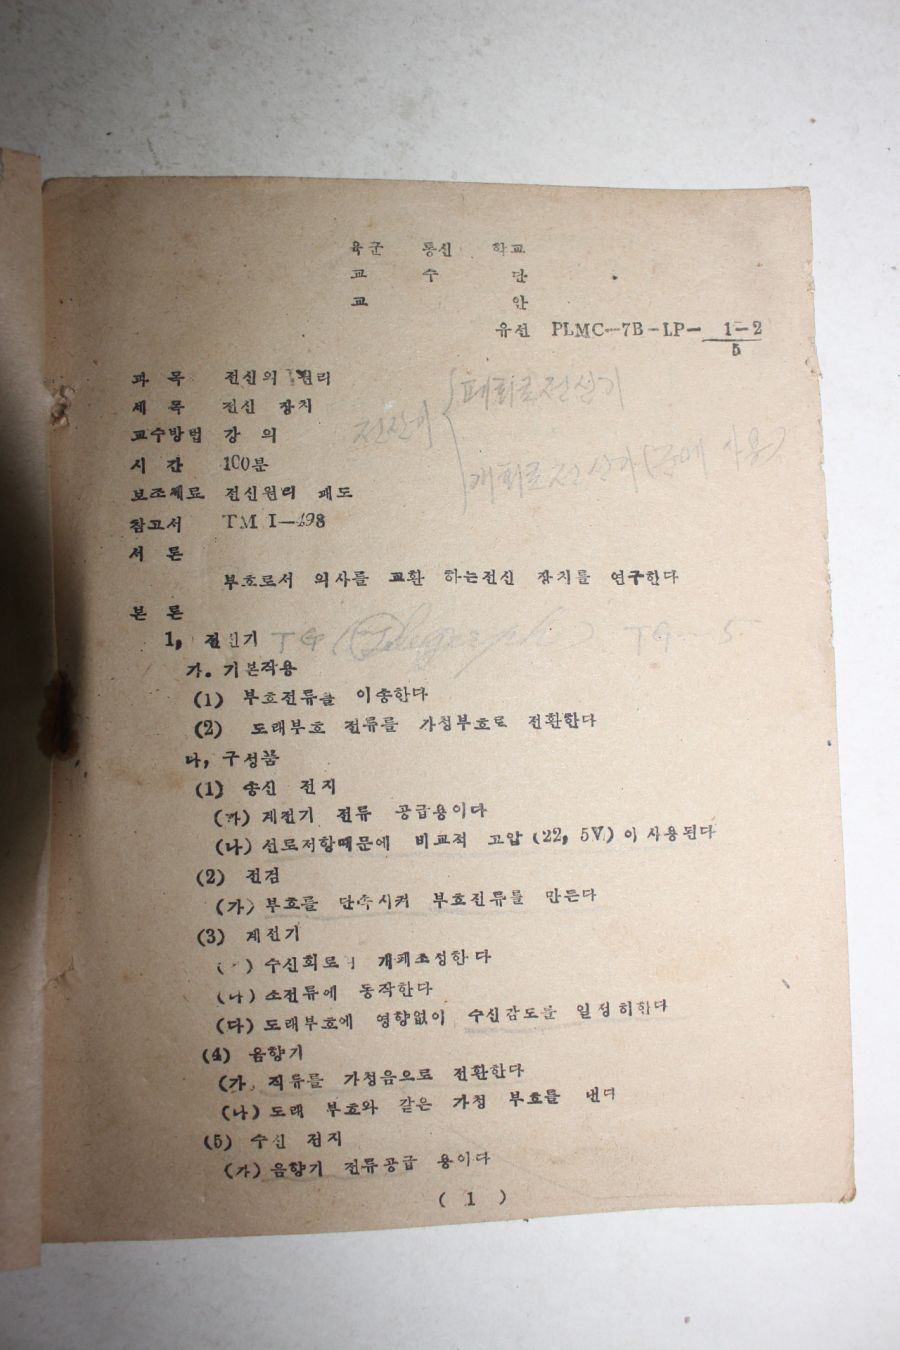 육군 통신 학교
교 수 단
교 안
유선 PLMC-7B-LP- 1-2
5
과 목 전신의 원리
세 목 전신 장치
교수방법 강 의
시 간 100분
보조재료 전신원리 괘도
참고서 TM I-498
서 론
부호로서 의사를 교환 하는전신 장치를 연구한다
전신기
폐회로전신기
개회로전신기
본 론
1, 전신기 TG (Telegraph) TG-5
가. 기본작용
(1) 부호전류를 이송한다
(2) 도래부호 전류를 가청부호로 전환한다
나, 구성품
(1) 송신 전지
(가) 계전기 전류 공급용이다
(나) 선로저항때문에 비교적 고압 (22, 5V) 이 사용된다
(2) 전검
(가) 부호를 단속시켜 부호전류를 만든다
(3) 계전기
( ) 수신회로 개폐조성한다
(나) 소전류에 동작한다
(다) 도래부호에 영향없이 수신감도를 일정히한다
(4) 음향기
(가) 직류를 가청음으로 전환한다
(나) 도래 부호와 같은 가청 부호를 낸다
(5) 수신 전지
(가) 음향기 전류공급 용이다
( 1 )